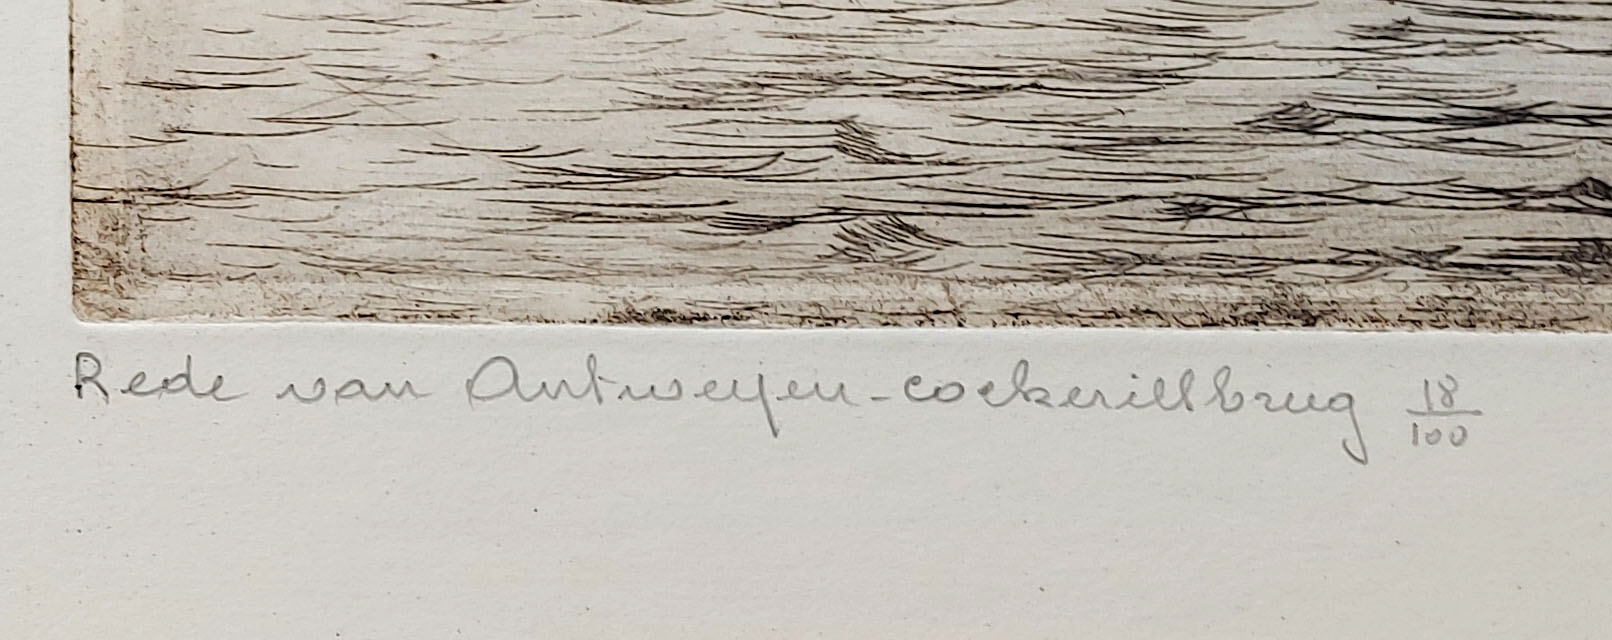 Rede van Antwerpen - cockerillbrug 18/100